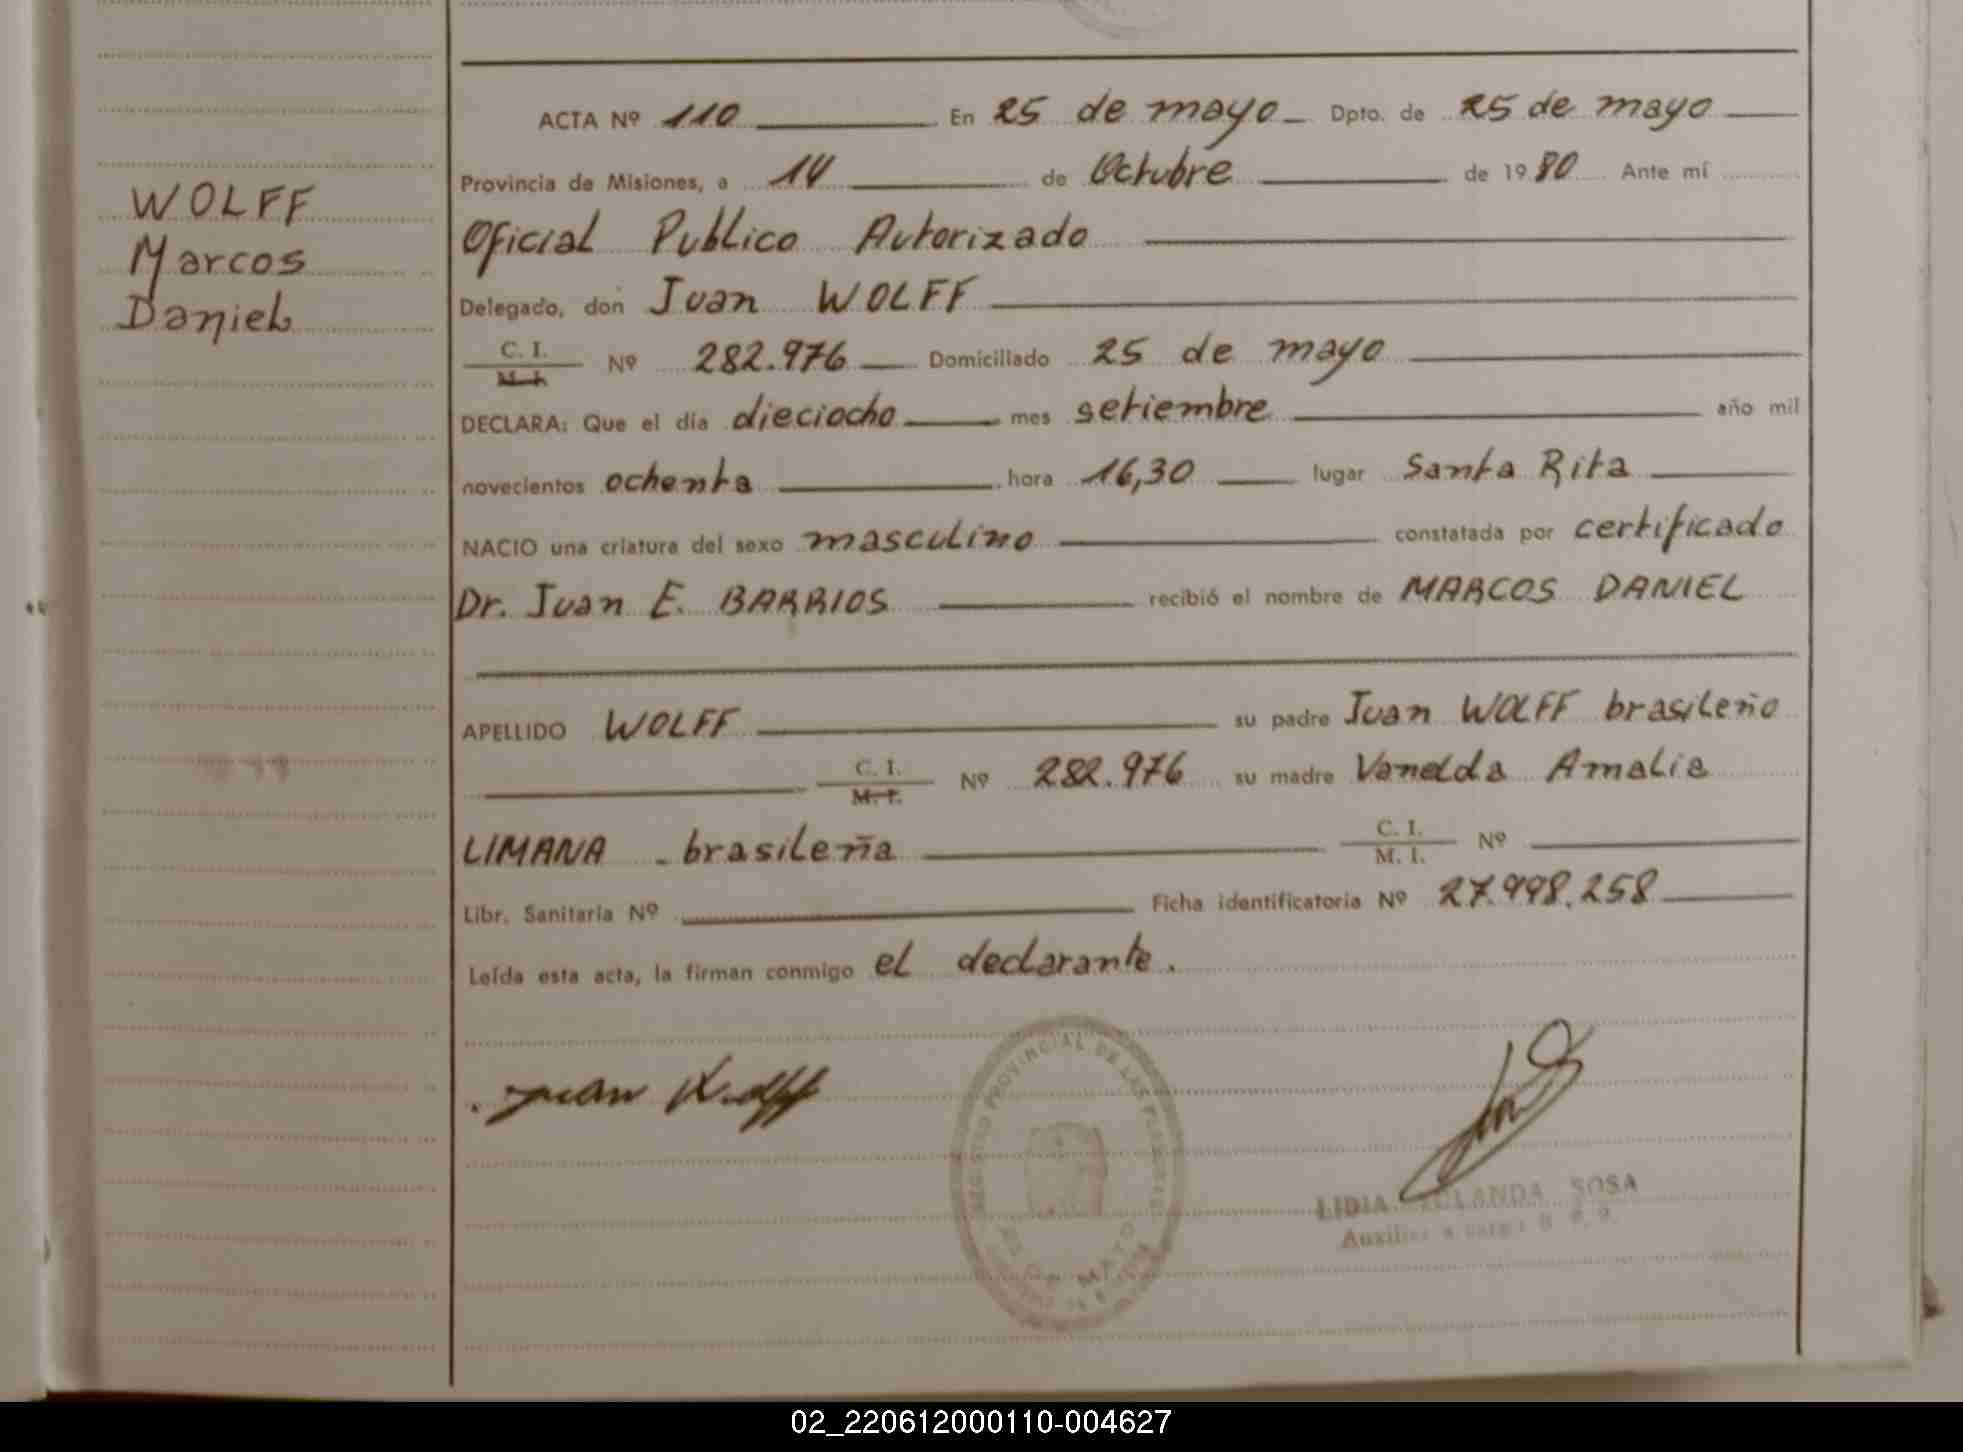 ACTA Nº 110 En 25 de mayo Dpto. de 25 de mayo
Provincia de Misiones, a 14 de Octubre de 1980 Ante mí
WOLFF
Marcos
Daniel
Oficial Publico Autorizado
Delegado, don Juan WOLFF
C. I.
M. I. Nº 282.976 Domiciliado 25 de mayo
DECLARA: Que el día dieciocho mes setiembre año mil
novecientos ochenta hora 16,30 lugar Santa Rita
NACIO una criatura del sexo masculino constatada por certificado
Dr. Juan E. BARRIOS recibió el nombre de MARCOS DANIEL
APELLIDO WOLFF su padre Juan WOLFF brasileño
C. I.
M. I. Nº 282.976 su madre Vanelda Amalia
LIMANA - brasileña C. I.
M. I. Nº
Libr. Sanitaria Nº Ficha identificatoria Nº 27.998.258
Leída esta acta, la firman conmigo el declarante.
Juan Wolff
REGISTRO PROVINCIAL DE LAS PERSONAS
25 DE MAYO
LIDIA YOLANDA SOSA
Auxiliar a cargo
02_220612000110-004627